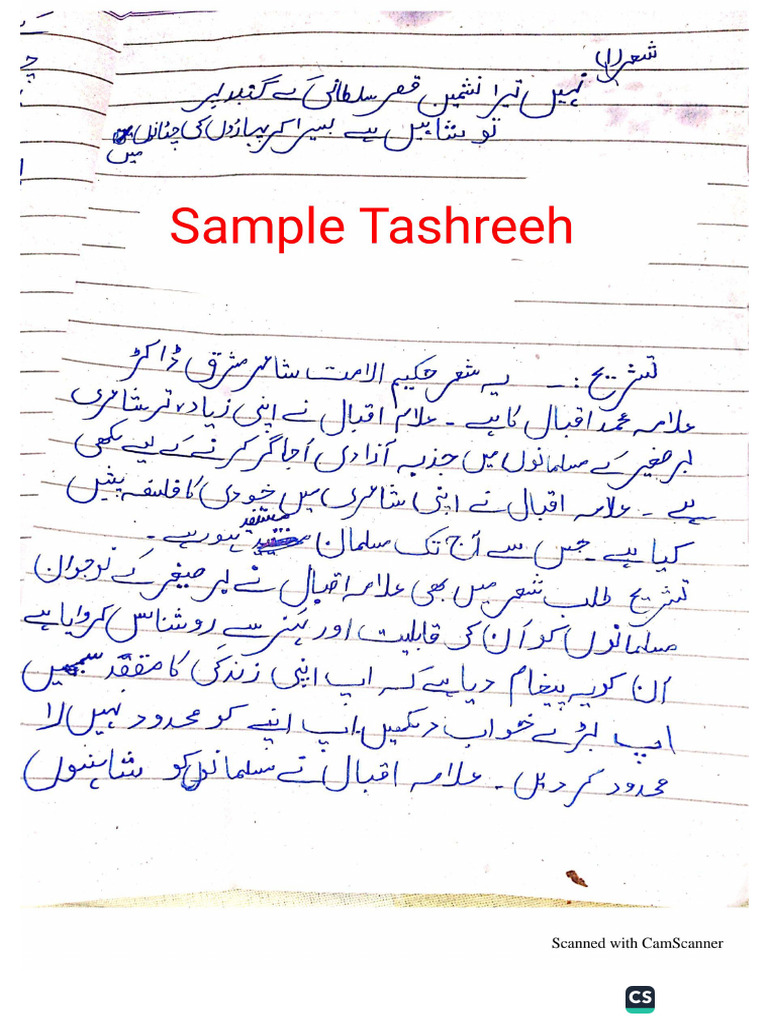 شعر (1)
نہیں تیرا نشیمن قصر سلطانی کے گنبد پر
تو شاہیں ہے بسیرا کر پہاڑوں کی چٹانوں
میں
Sample Tashreeh
تشریح :- یہ شعر حکیم الامت شاعر مشرق ڈاکٹر
علامہ محمد اقبال کا ہے - علامہ اقبال نے اپنی زیادہ تر شاعری
برصغیر کے مسلمانوں میں جذبہ آزادی اُجاگر کرنے کے لیے لکھی
ہے - علامہ اقبال نے اپنی شاعری میں خودی کا فلسفہ پیش
کیا ہے - جس سے آج تک مسلمان مستفید ہورہے -
تشریح طلب شعر میں بھی علامہ اقبال نے برصغیر کے نوجوان
مسلمانوں کو اُن کی قابلیت اور ہنر سے روشناس کروایا ہے
اُن کو یہ پیغام دیا ہے کہ اپ اپنی زندگی کا مقصد سمجھیں
اپ بڑے خواب دیکھیں اپ اپنے کو محدود نہیں لا
محدود کر دیں - علامہ اقبال نے مسلمانوں کو شاہینوں
Scanned with CamScanner
CS